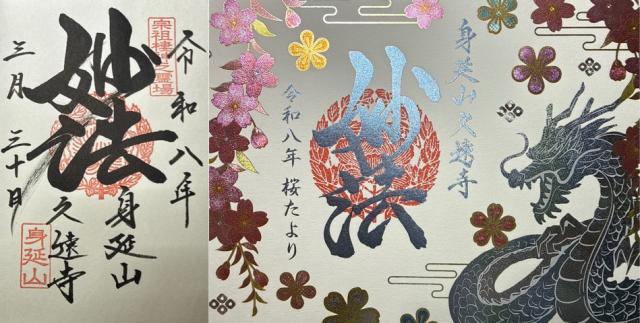 令和八年
妙法
身延山
久遠寺
三月三十日
身延山
身延山久遠寺
妙法
令和八年 桜たより